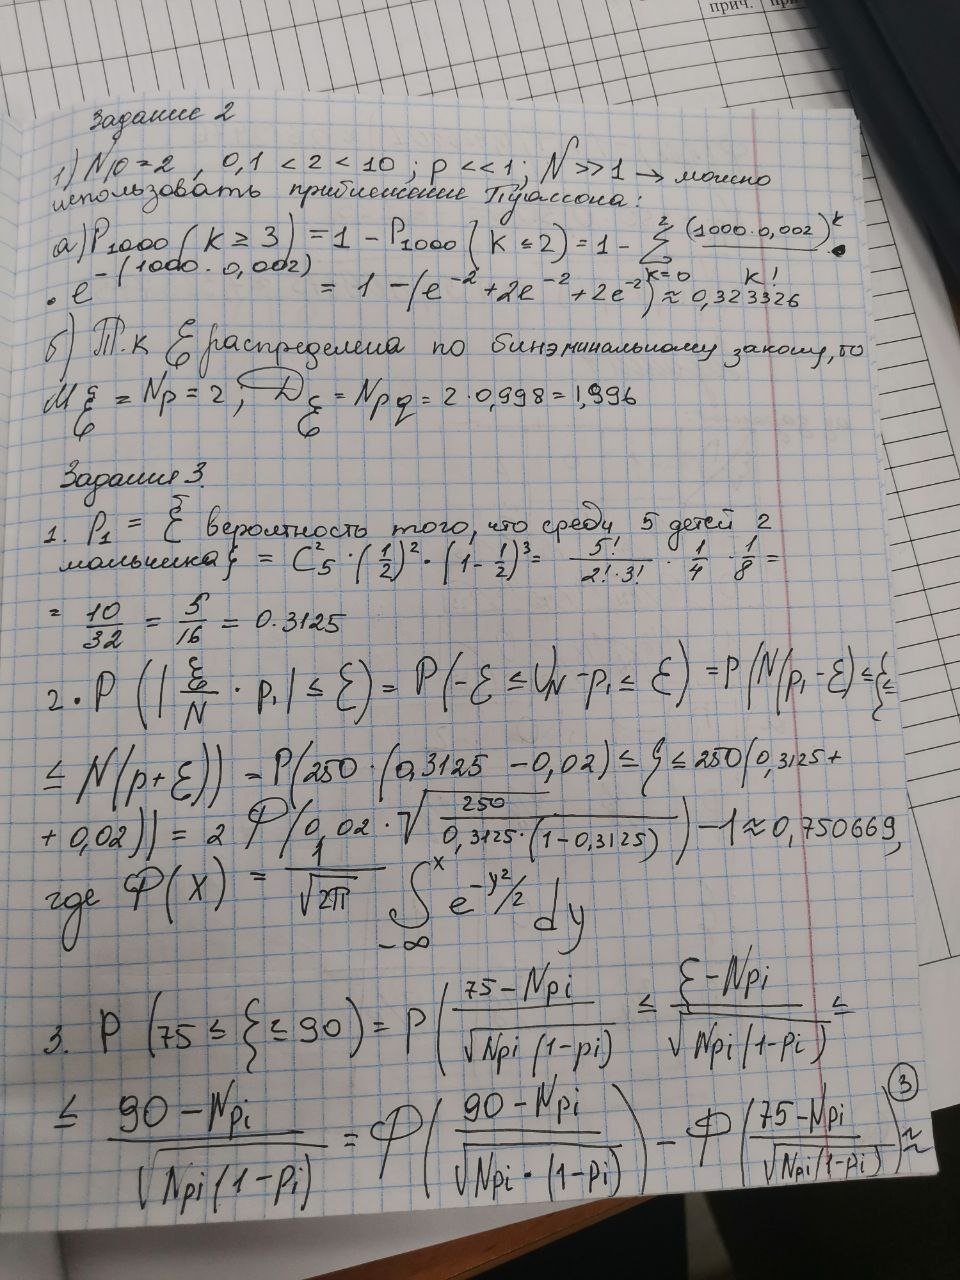 прич. при
Задание 2
1) Np = 2 , 0,1 < 2 < 10 ; p << 1 ; N >> 1 → можно
использовать приближение Пуассона:
а) P₁₀₀₀ ( k ≥ 3 ) = 1 − P₁₀₀₀ ( k ≤ 2 ) = 1 − ∑_{k=0}^{2} (1000·0,002)^k / k! ·
· e^{−(1000·0,002)} = 1 − (e⁻² + 2e⁻² + 2e⁻²) ≈ 0,323326
б) Т.к ξ распределена по бинэминальному закону, то
M_ξ = Np = 2 , D_ξ = Npq = 2·0,998 = 1,996
Задание 3.
1. P₁ = { вероятность того, что среди 5 детей 2
мальчика } = C₅² · (1/2)² · (1 − 1/2)³ = 5!/(2!·3!) · 1/4 · 1/8 =
= 10/32 = 5/16 = 0.3125
2. P ( | ξ/N · p₁ | ≤ ε ) = P ( −ε ≤ νN − p₁ ≤ ε ) = P ( N(p₁ − ε) ≤ ξ ≤
≤ N(p + ε)) = P(250·(0,3125 − 0,02) ≤ ξ ≤ 250(0,3125 +
+ 0,02)) = 2 Φ(0,02 · √(250 / (0,3125·(1 − 0,3125)))) − 1 ≈ 0,750669,
где Φ(x) = 1/√2π ∫_{−∞}^{x} e^{−y²/2} dy
3. P (75 ≤ ξ ≤ 90) = P ( (75 − Npi) / √(Npi(1−pi)) ≤ (ξ − Npi) / √(Npi(1−pi)) ≤
≤ (90 − Npi) / √(Npi(1−pi)) = Φ( (90 − Npi) / √(Npi·(1−pi)) ) − Φ( (75 − Npi) / √(Npi(1−pi)) ) ≈
3